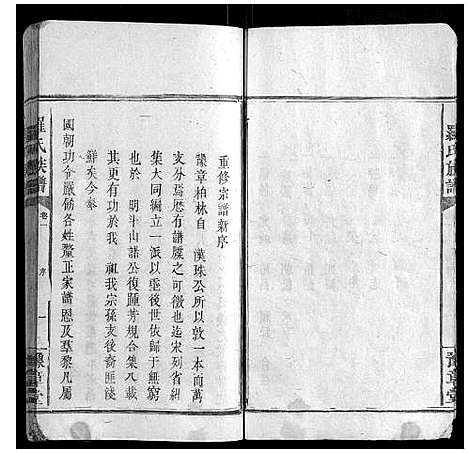 羅氏族譜
豫章堂
重修宗譜新序
豫章柏林自 漢珠公所以敦一本而萬
支分焉歷有譜牒之可徵也迄宋列省紹
集大同編立一派以垂後世依歸于無窮
也於 明斗山譜公復踵芳規合集八載
其更有功於我 祖我宗孫支後裔匪淺
鮮矣今奉
國朝功令嚴飭各姓釐正家譜恩及羣黎凡屬
羅氏族譜 卷一 序 一 豫章堂